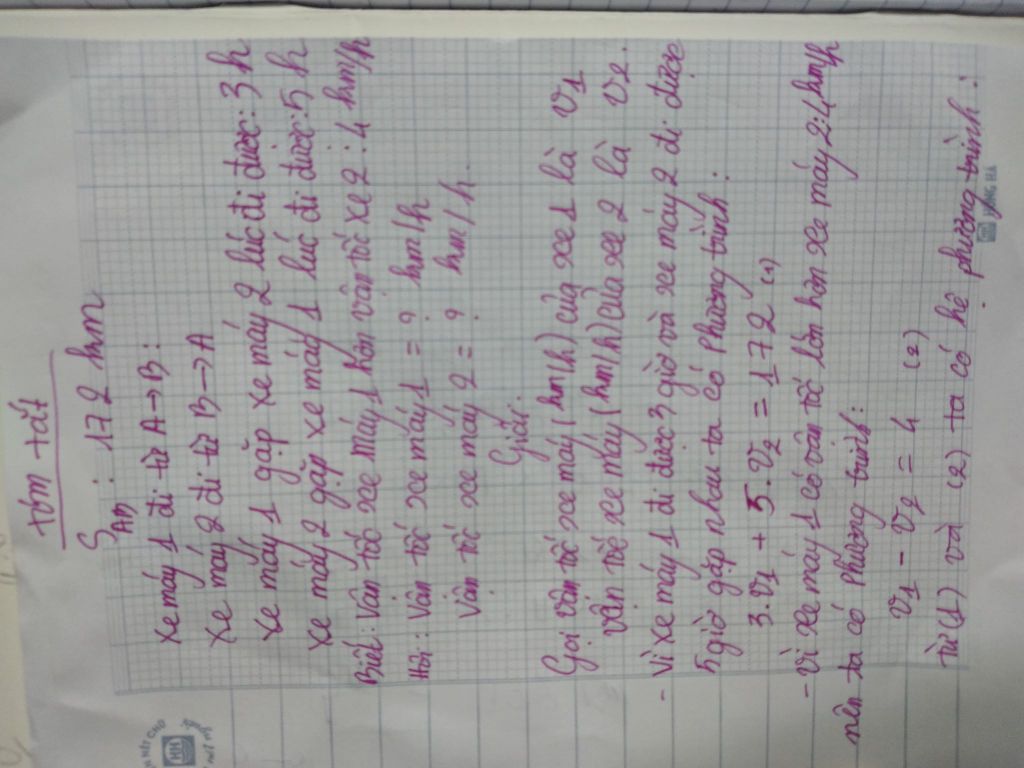 tóm tắt
S AB : 172 km
xe máy 1 đi từ A → B :
xe máy 2 đi từ B → A
xe máy 1 gặp xe máy 2 lúc đi được : 3 h
xe máy 2 gặp xe máy 1 lúc đi được : 5 h
Biết : Vận tốc xe máy 1 hơn vận tốc xe 2 : 4 km/h
Hỏi : Vận tốc xe máy 1 = ? km/h
Vận tốc xe máy 2 = ? km/h.
Giải.
Gọi vận tốc xe máy (km/h) của xe 1 là v1
vận tốc xe máy (km/h) của xe 2 là v2.
- Vì xe máy 1 đi được 3 giờ và xe máy 2 đi được
5 giờ gặp nhau ta có phương trình :
3.v1 + 5.v2 = 172 (1)
- Vì xe máy 1 có vận tốc lớn hơn xe máy 2 : 4 km/h
nên ta có phương trình :
v1 - v2 = 4 (2)
từ (1) và (2) ta có hệ phương trình :
HỒNG HÀ
NÉT CHỮ
HH